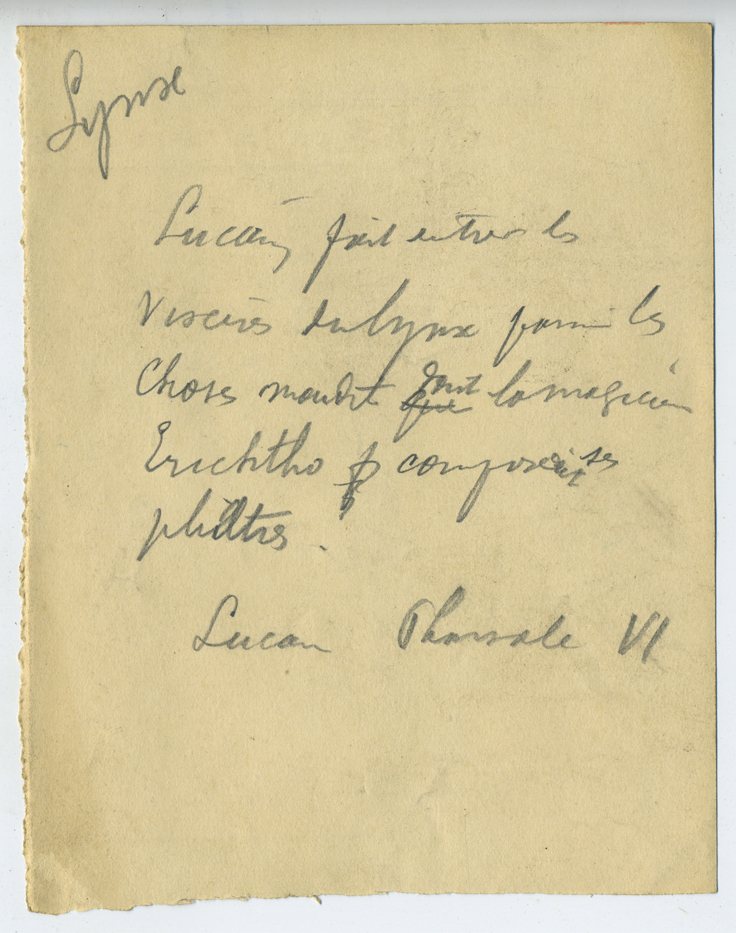 Lynx
Lucain fait entrer les
viscères du lynx parmi les
choses maudites dont la magicienne
Erichtho composait ses
philtres.
Lucain Pharsale VI